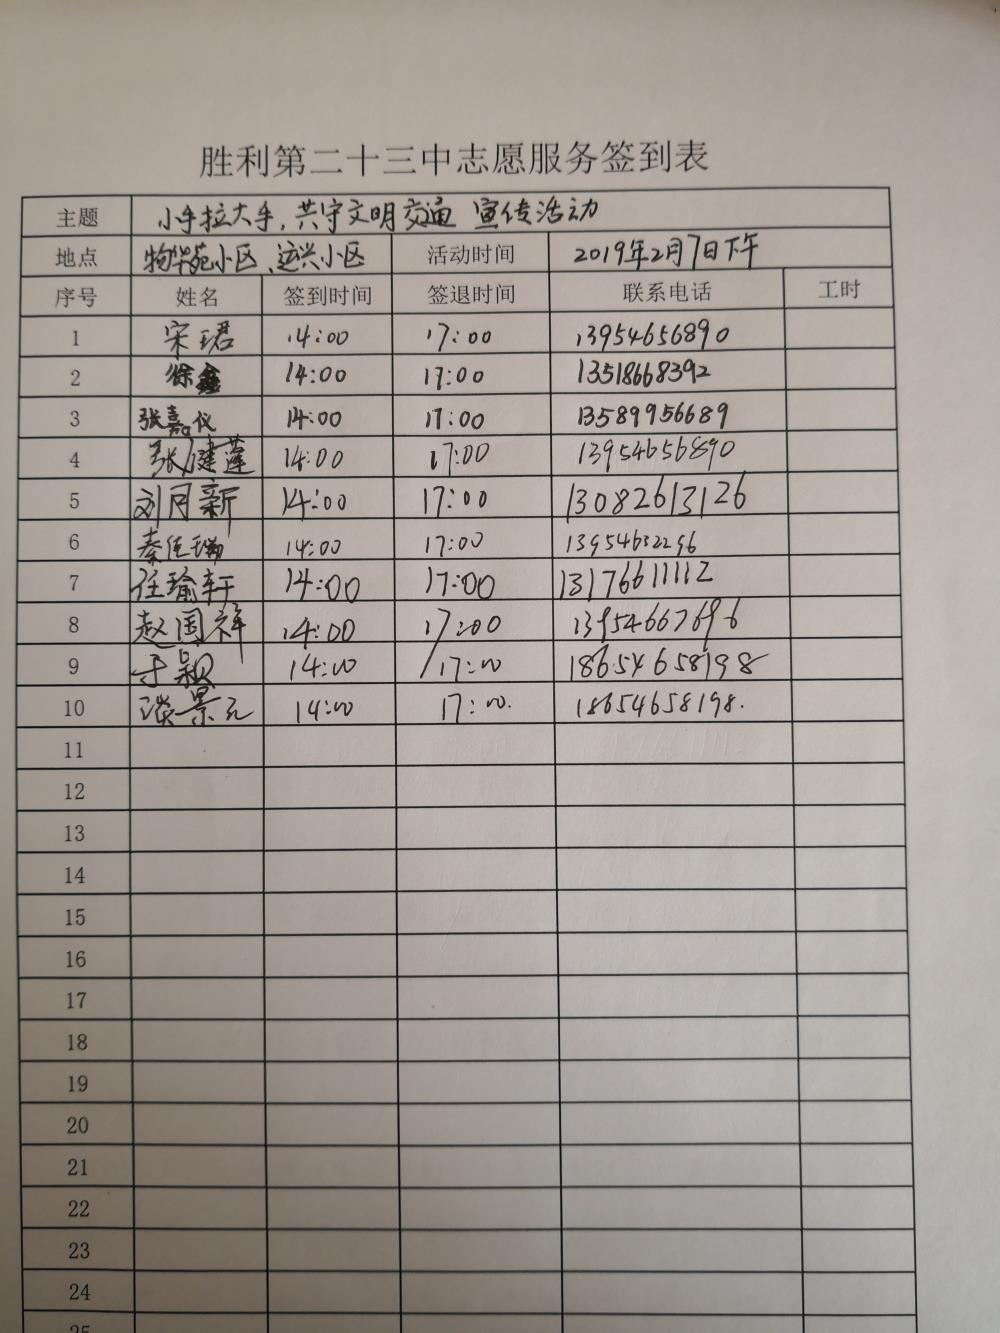 胜利第二十三中志愿服务签到表
主题 小手拉大手,共守文明交通 宣传活动
地点 物华苑小区、运兴小区 活动时间 2019年2月7日下午
序号 姓名 签到时间 签退时间 联系电话 工时
1 宋珺 14:00 17:00 13954656890
2 徐鑫 14:00 17:00 13518668392
3 张嘉仪 14:00 17:00 13589956689
4 张健莲 14:00 17:00 13954656890
5 刘月新 14:00 17:00 13082613126
6 秦 14:00 17:00 13954632296
7 任瑜轩 14:00 17:00 13176611112
8 赵国祥 14:00 17:00 13954667696
9 于 14:00 17:00 18654658198
10 淡景元 14:00 17:00. 18654658198.
11
12
13
14
15
16
17
18
19
20
21
22
23
24
25